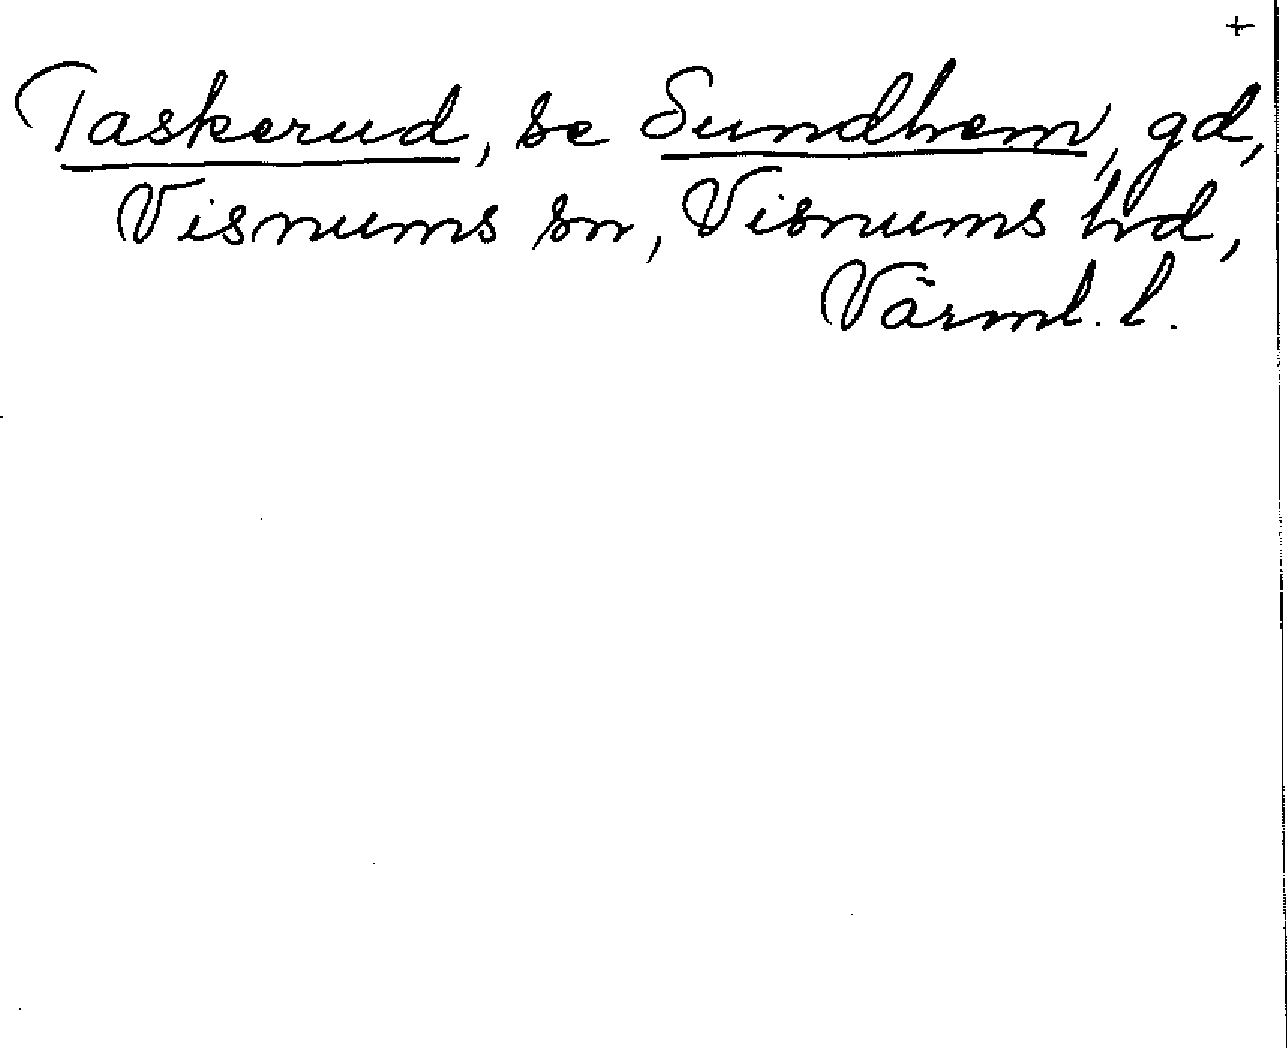 +
Taskerud, se Sundhem, gd,
Visnums sn, Visnums hd,
Värml. l.